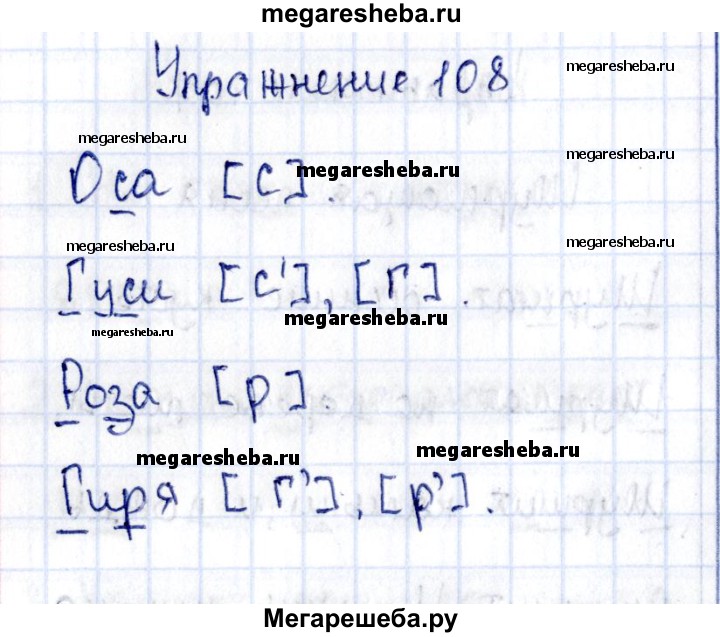 megaresheba.ru
Упражнение 108
megaresheba.ru
megaresheba.ru
Оса [с].
megaresheba.ru
megaresheba.ru
megaresheba.ru
Гуси [с'], [г].
megaresheba.ru
megaresheba.ru
Роза [р].
megaresheba.ru
megaresheba.ru
Гиря [г'], [р'].
Мегарешеба.ру